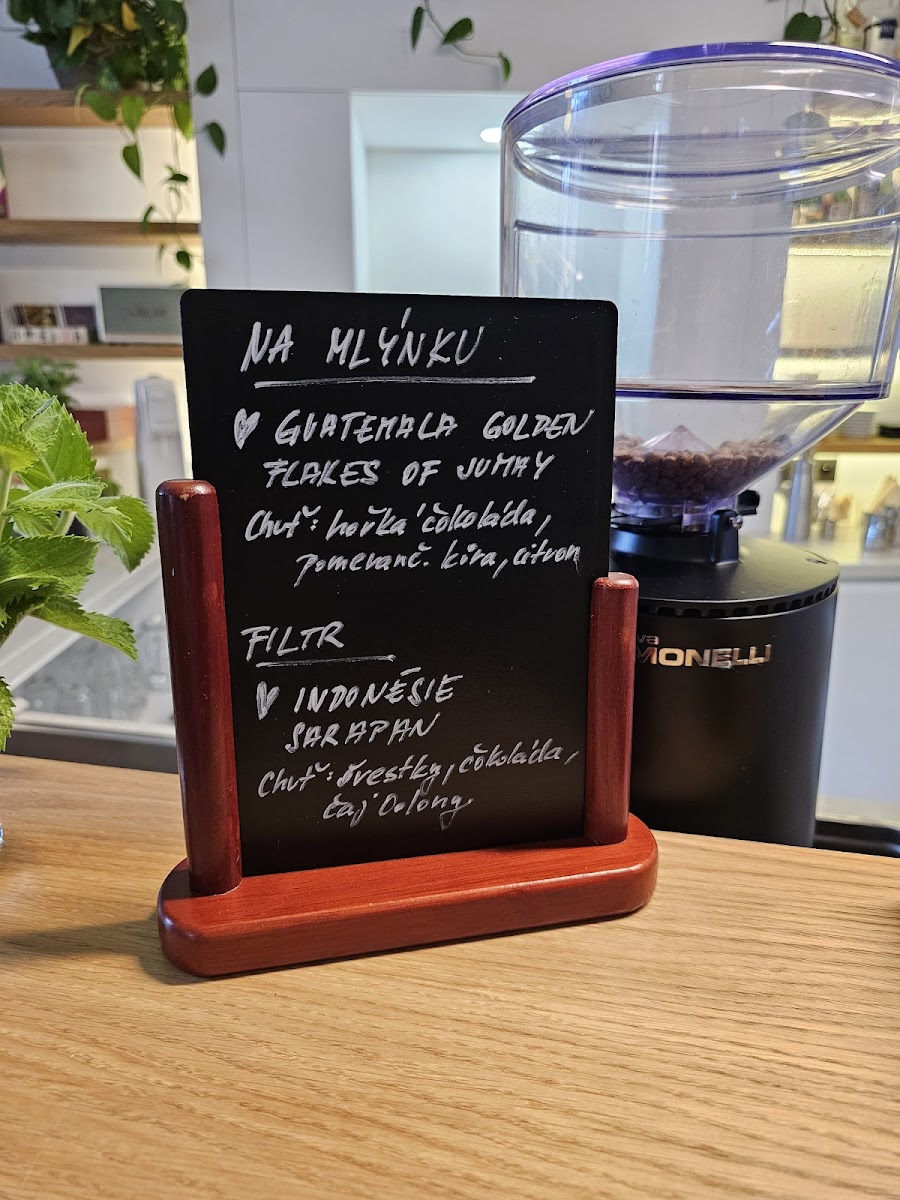 NA MLÝNKU
♥ GUATEMALA GOLDEN
FLAKES OF JUMAY
Chuť: hořká čokoláda,
pomeranč. kůra, citron
FILTR
♥ INDONÉSIE
SARAPAN
Chuť: švestky, čokoláda,
čaj Oolong.
va
MONELLI